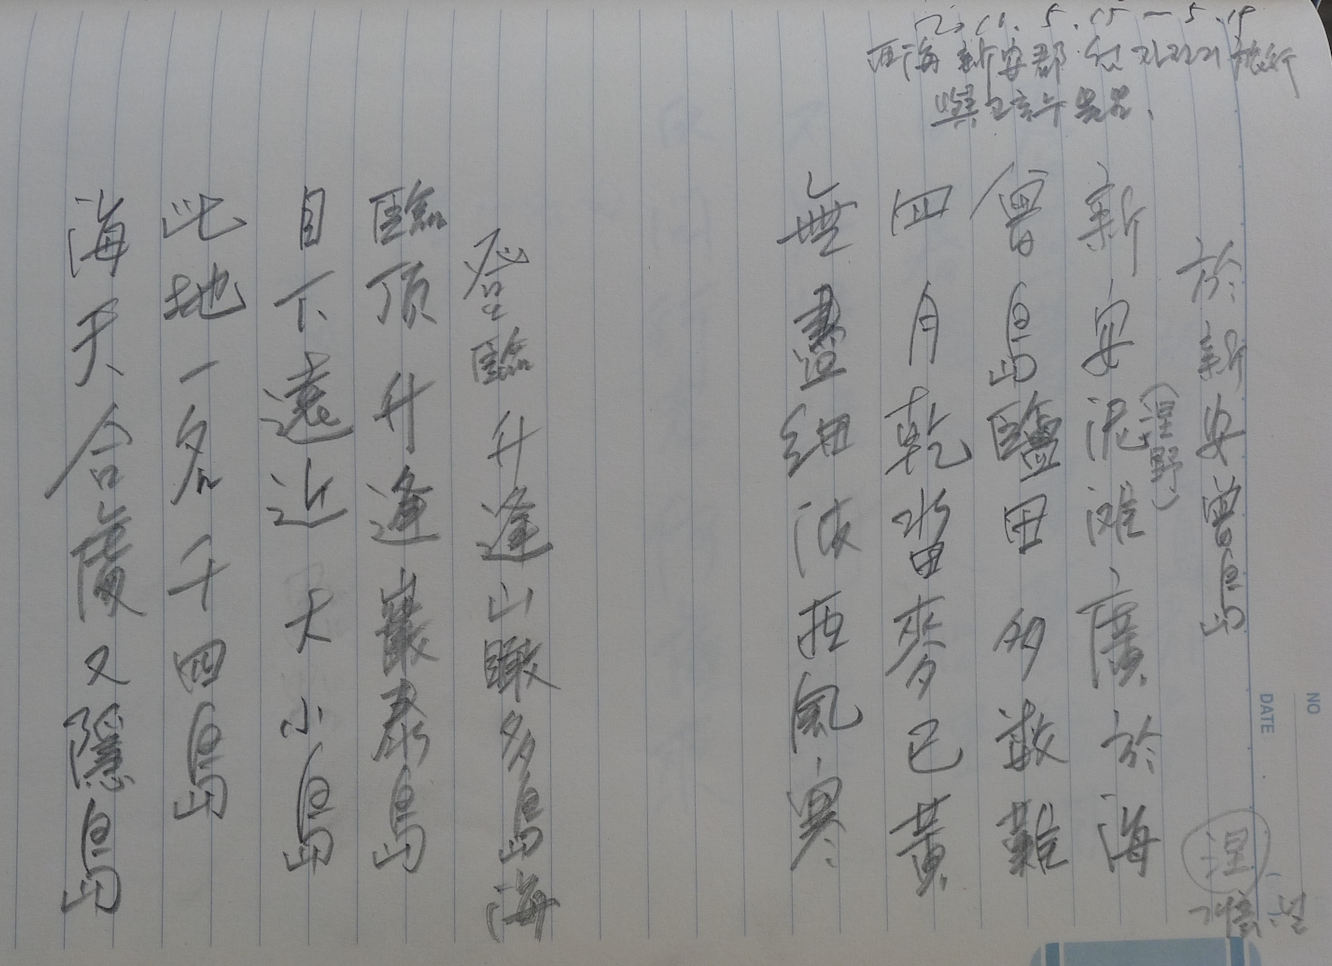 5.15-5.19
西海 新安郡
與
於新安曾島
新安泥滩廣於海
(涅野)
曾島鹽田多数難
四月乾畓麥已黃
無盡細波 風寒
登臨升逢山瞰多島海
臨頂升逢巖泰島
目下遠近大小島
此地一名千四島
海天合 又隱島
涅
NO
DATE